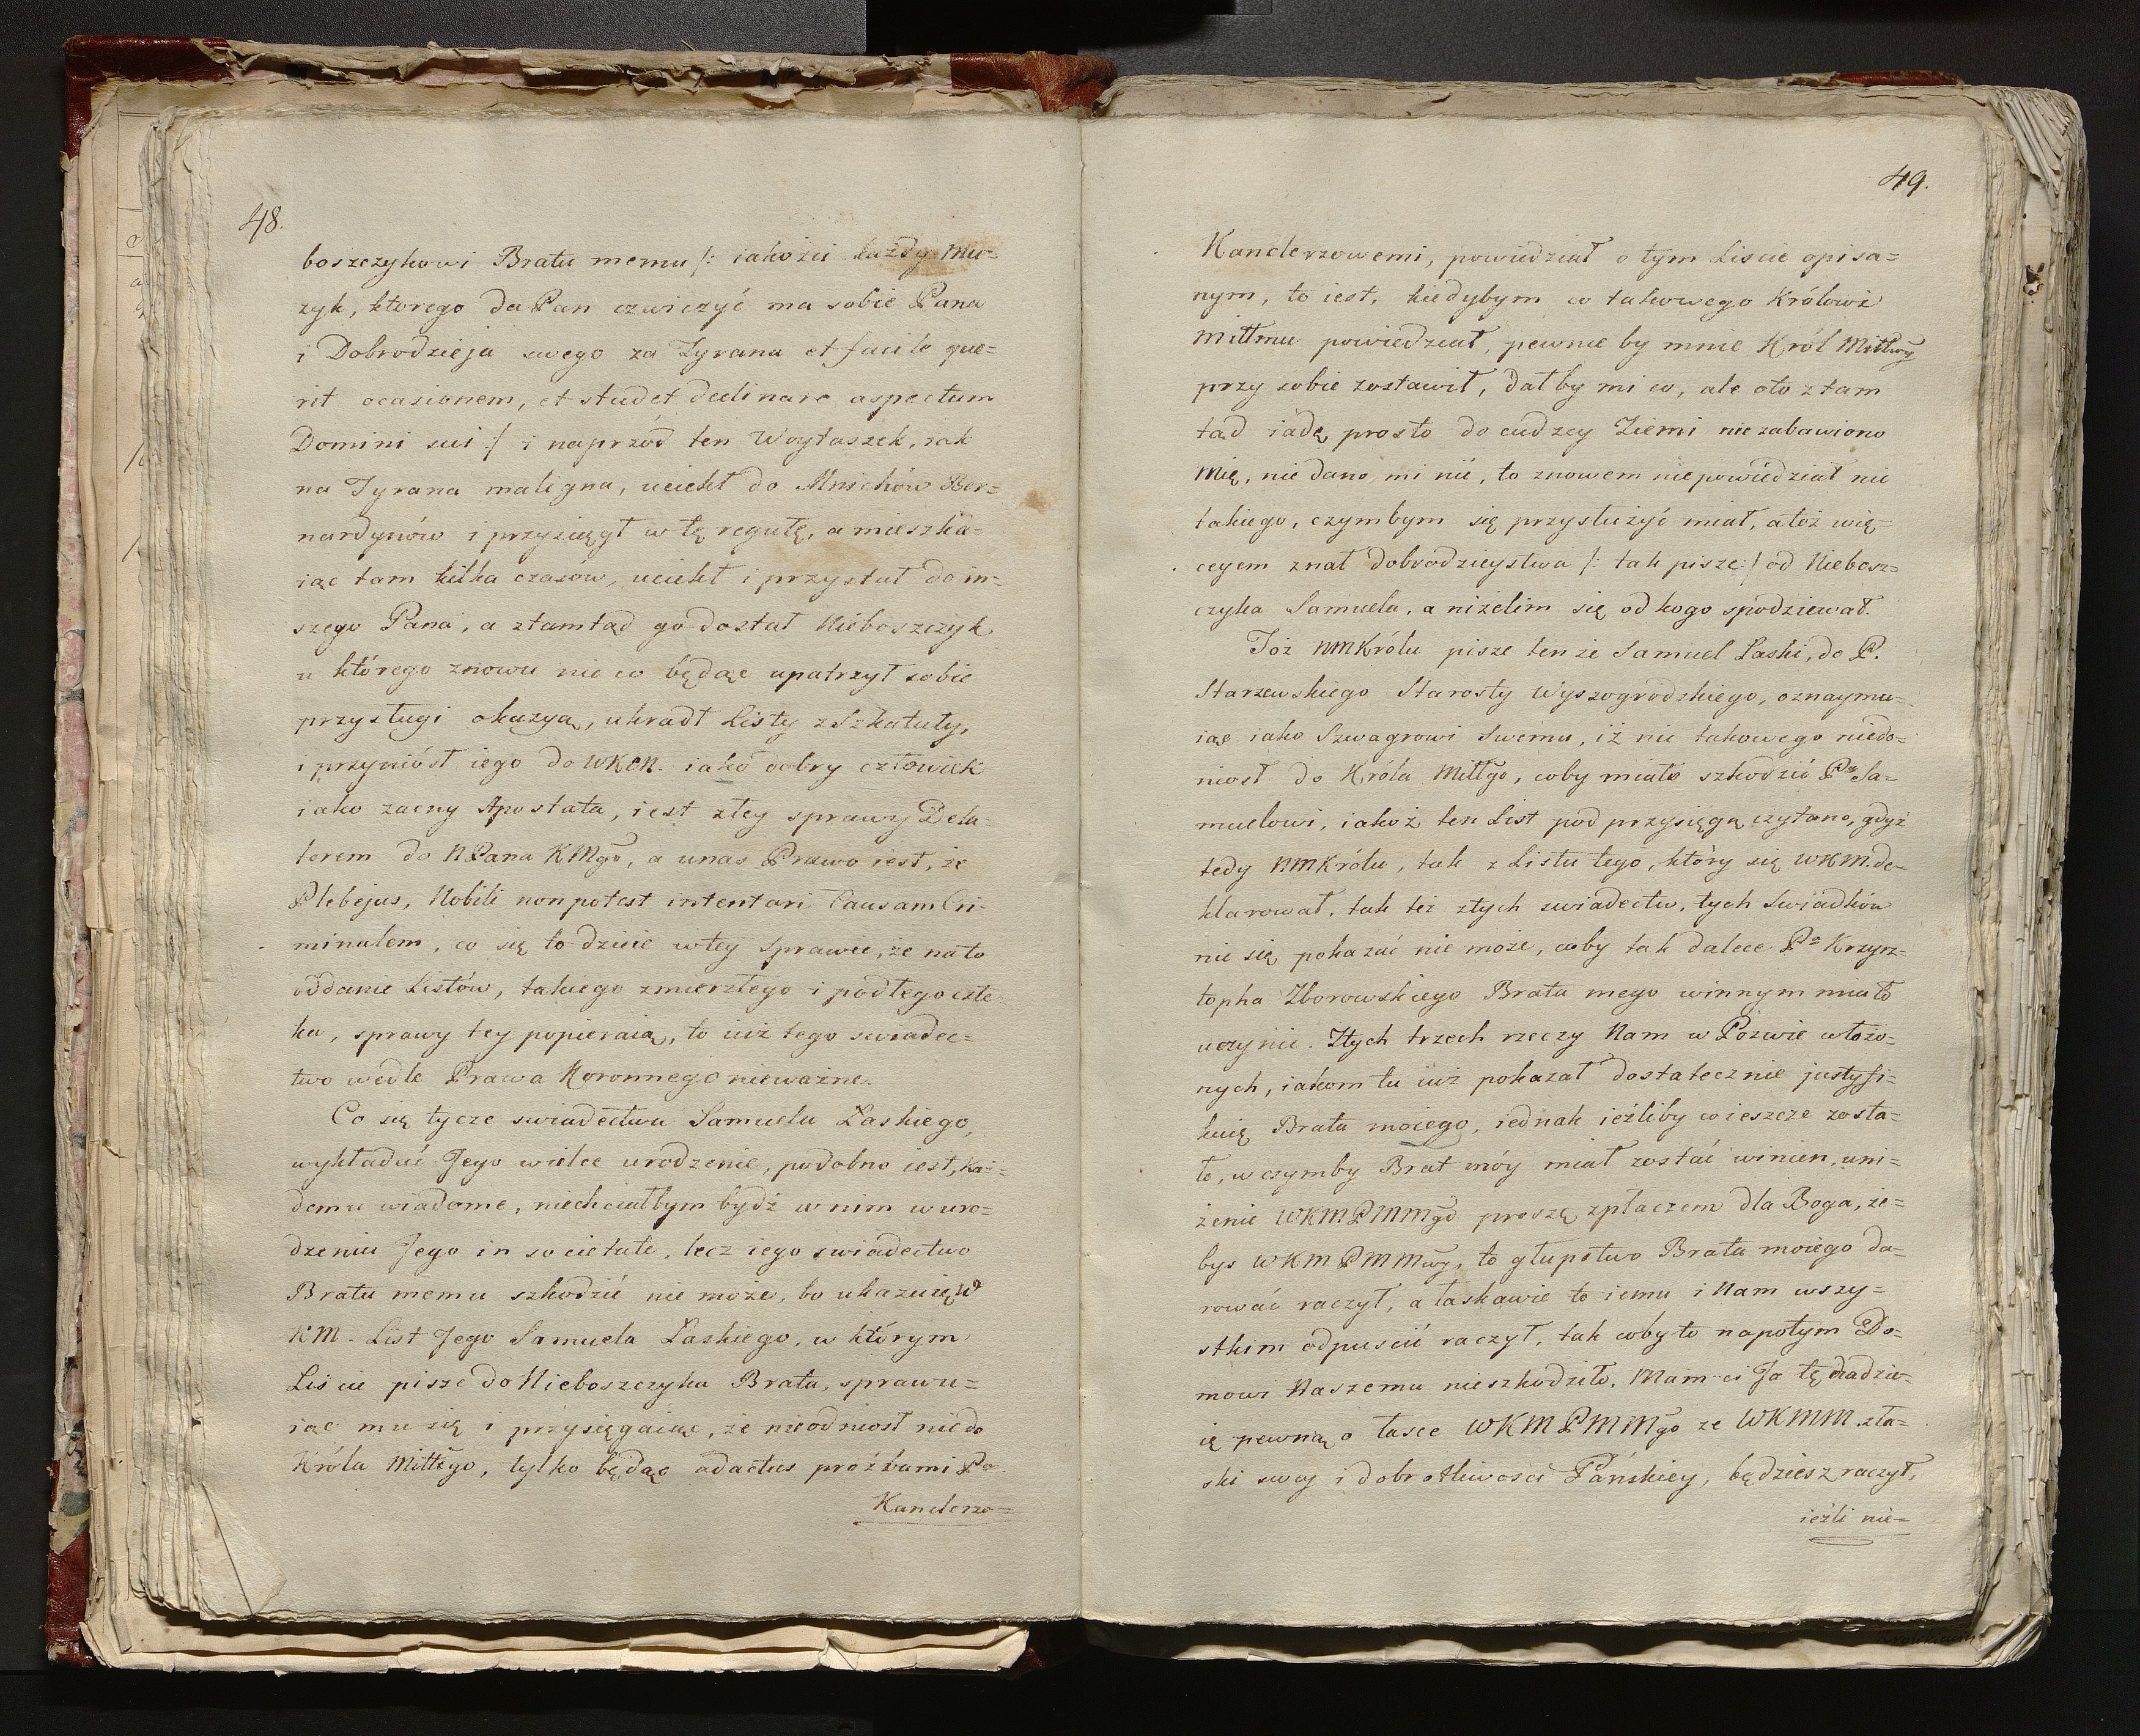 48.
boszczykowi Bratu memu /: iakożci każdy Mu=
zyk, ktorego da Pan czwiczyć ma sobie Pana
i Dobrodzieja swego za Tyrana et facile que=
rit ocasionem, et studet declinare aspectum
Domini sui :/ i naprzód ten Woytaszek, iak
na Tyrana maligna, uciekł do Mnichów Ber=
nardynów i przysiągł w tę regułę, a mieszka=
iąc tam kilka czasów, uciekł i przystał do in=
szego Pana, a ztamtąd go dostał Nieboszczyk
u którego znowu nie co będąc upatrzył sobie
przysługi okazyą, ukradł Listy z Szkatuły,
i przyniósł iego do WKM. iako dobry człowiek
iako zacny Apostata, iest złey sprawy Dela=
torem do NPana KMgo, a unas Prawo iest, że
Plebejus, Nobili non potest intentari Causam Cri=
minalem, co się to dzieie w tey sprawie, że na to
oddanie Listów, takiego zmierzłego i podłego czło
ka, sprawy tey popieraią, to iuż tego swiadec=
two wedle Prawa Koronnego nieważne.
Co się tycze swiadectwa Samuela Łaskiego,
wykładać Jego wielce urodzenie, podobno iest, Każ=
demu wiadome, niechciałbym bydź w nim w uro=
dzeniu Jego in societate, lecz iego swiadectwo
Bratu memu szkodzić nie może, bo ukazuię W
KM. List Jego Samuela Łaskiego, w którym
Liscie pisze do Nieboszczyka Brata, sprawu=
iąc mu się i przysięgaiąc, że nieodniosł nic do
Króla Miłłego, tylko będąc adactus prośbami Pa
Kanclerzo=
49.
Kanclerzowemi, powiedział o tym Liscie opisa=
nym, to iest, kiedybym co takowego Królowi
Miłłmu powiedział, pewnie by mnie Król Miłłwy
przy sobie zostawił, dał by mi co, ale oto ztam
tąd iadę prosto do cudzey Ziemi nie zabawiono
mię, nie dano mi nic, to znowem niepowiedział nic
takiego, czymbym się przysłużyć miał, atoż wię=
ceyem znał dobrodzieystwa /: tak pisze :/ od Niebosz=
czyka Samuela, a niżelim się od kogo spodziewał.
Toż NMKrólu pisze tenże Samuel Łaski, do P.
Starzewskiego Starosty Wyszogrodzkiego, oznaymu=
iąc iako Szwagrowi Swemu, iż nic takowego niedo=
niosł do Króla Miłłgo, coby miało szkodzić Pu Sa=
muelowi, iakoż ten List pod przysięgą czytano, gdyż
tedy NMKrólu, tak z Listu tego, który się WKM. de=
klarował, tak też ztych swiadectw, tych Swiadków
nic się pokazać nie może, coby tak dalece Pa Krzyrz=
topha Zborowskiego Brata mego winnym miało
uczynić. Ztych trzech rzeczy Nam w Pozwie włożo=
nych, iakom tu iuż pokazał dostatecznie justyfi=
kuię Brata moiego, iednak ieźliby co ieszcze zosta=
ło, w czymby Brat móy miał zostać winien, uni=
żenie WKMPMMgo proszę z płaczem dla Boga, że=
bys WKMPMMwy, to głupstwo Brata moiego da=
rować raczył, a łaskawie to iemu i Nam wszy=
stkim odpuscić raczył, tak coby to napotym Do=
mowi Naszemu nieszkodziło. Mam ci Ja tę nadzie=
ię pewną o łasce WKMPMMgo ze WKMM. z ła=
ski swey i dobrotliwosci Pańskiey, będziesz raczył,
ieźli nie=